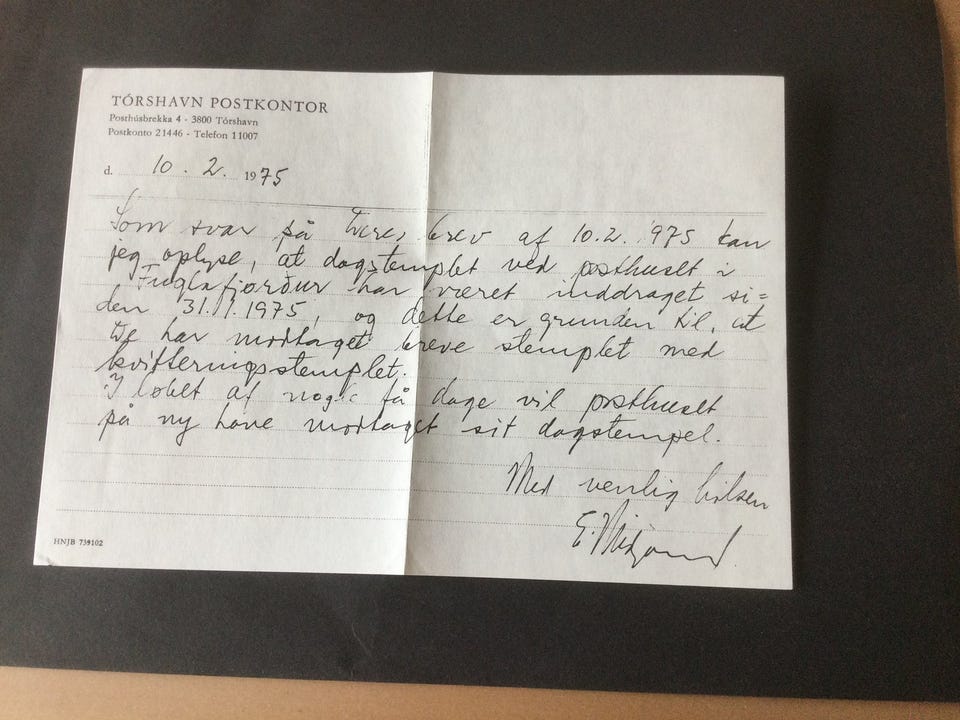 TÓRSHAVN POSTKONTOR
Posthúsbrekka 4 - 3800 Tórshavn
Postkonto 21446 - Telefon 11007
d. 10. 2. 1975
Som svar på Deres brev af 10.2.1975 kan
jeg oplyse, at dagstemplet ved posthuset i
Fuglafjørður har været inddraget si=
den 31.1.1975, og dette er grunden til, at
De har modtaget breve stemplet med
kvitteringsstemplet.
I løbet af nogle få dage vil posthuset
på ny have modtaget sit dagstempel.
Med venlig hilsen
E.
HNJB 739102